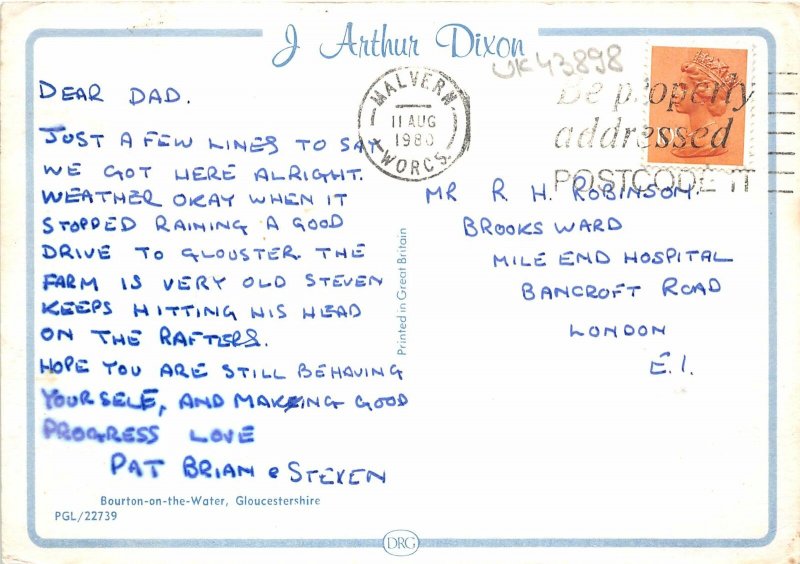 J Arthur Dixon
UK43898
MALVERN
11 AUG
1980
WORCS.
Be properly
addressed
POSTCODE IT
DEAR DAD.
JUST A FEW LINES TO SAY
WE GOT HERE ALRIGHT.
WEATHER OKAY WHEN IT
STOPPED RAINING A GOOD
DRIVE TO GLOUSTER. THE
FARM IS VERY OLD STEVEN
KEEPS HITTING HIS HEAD
ON THE RAFTERS.
HOPE YOU ARE STILL BEHAVING
YOURSELF, AND MAKING GOOD
PROGRESS LOVE
PAT BRIAN & STEVEN
Printed in Great Britain
MR R H ROBINSON.
BROOKS WARD
MILE END HOSPITAL
BANCROFT ROAD
LONDON
E.1.
Bourton-on-the-Water, Gloucestershire
PGL/22739
DRG